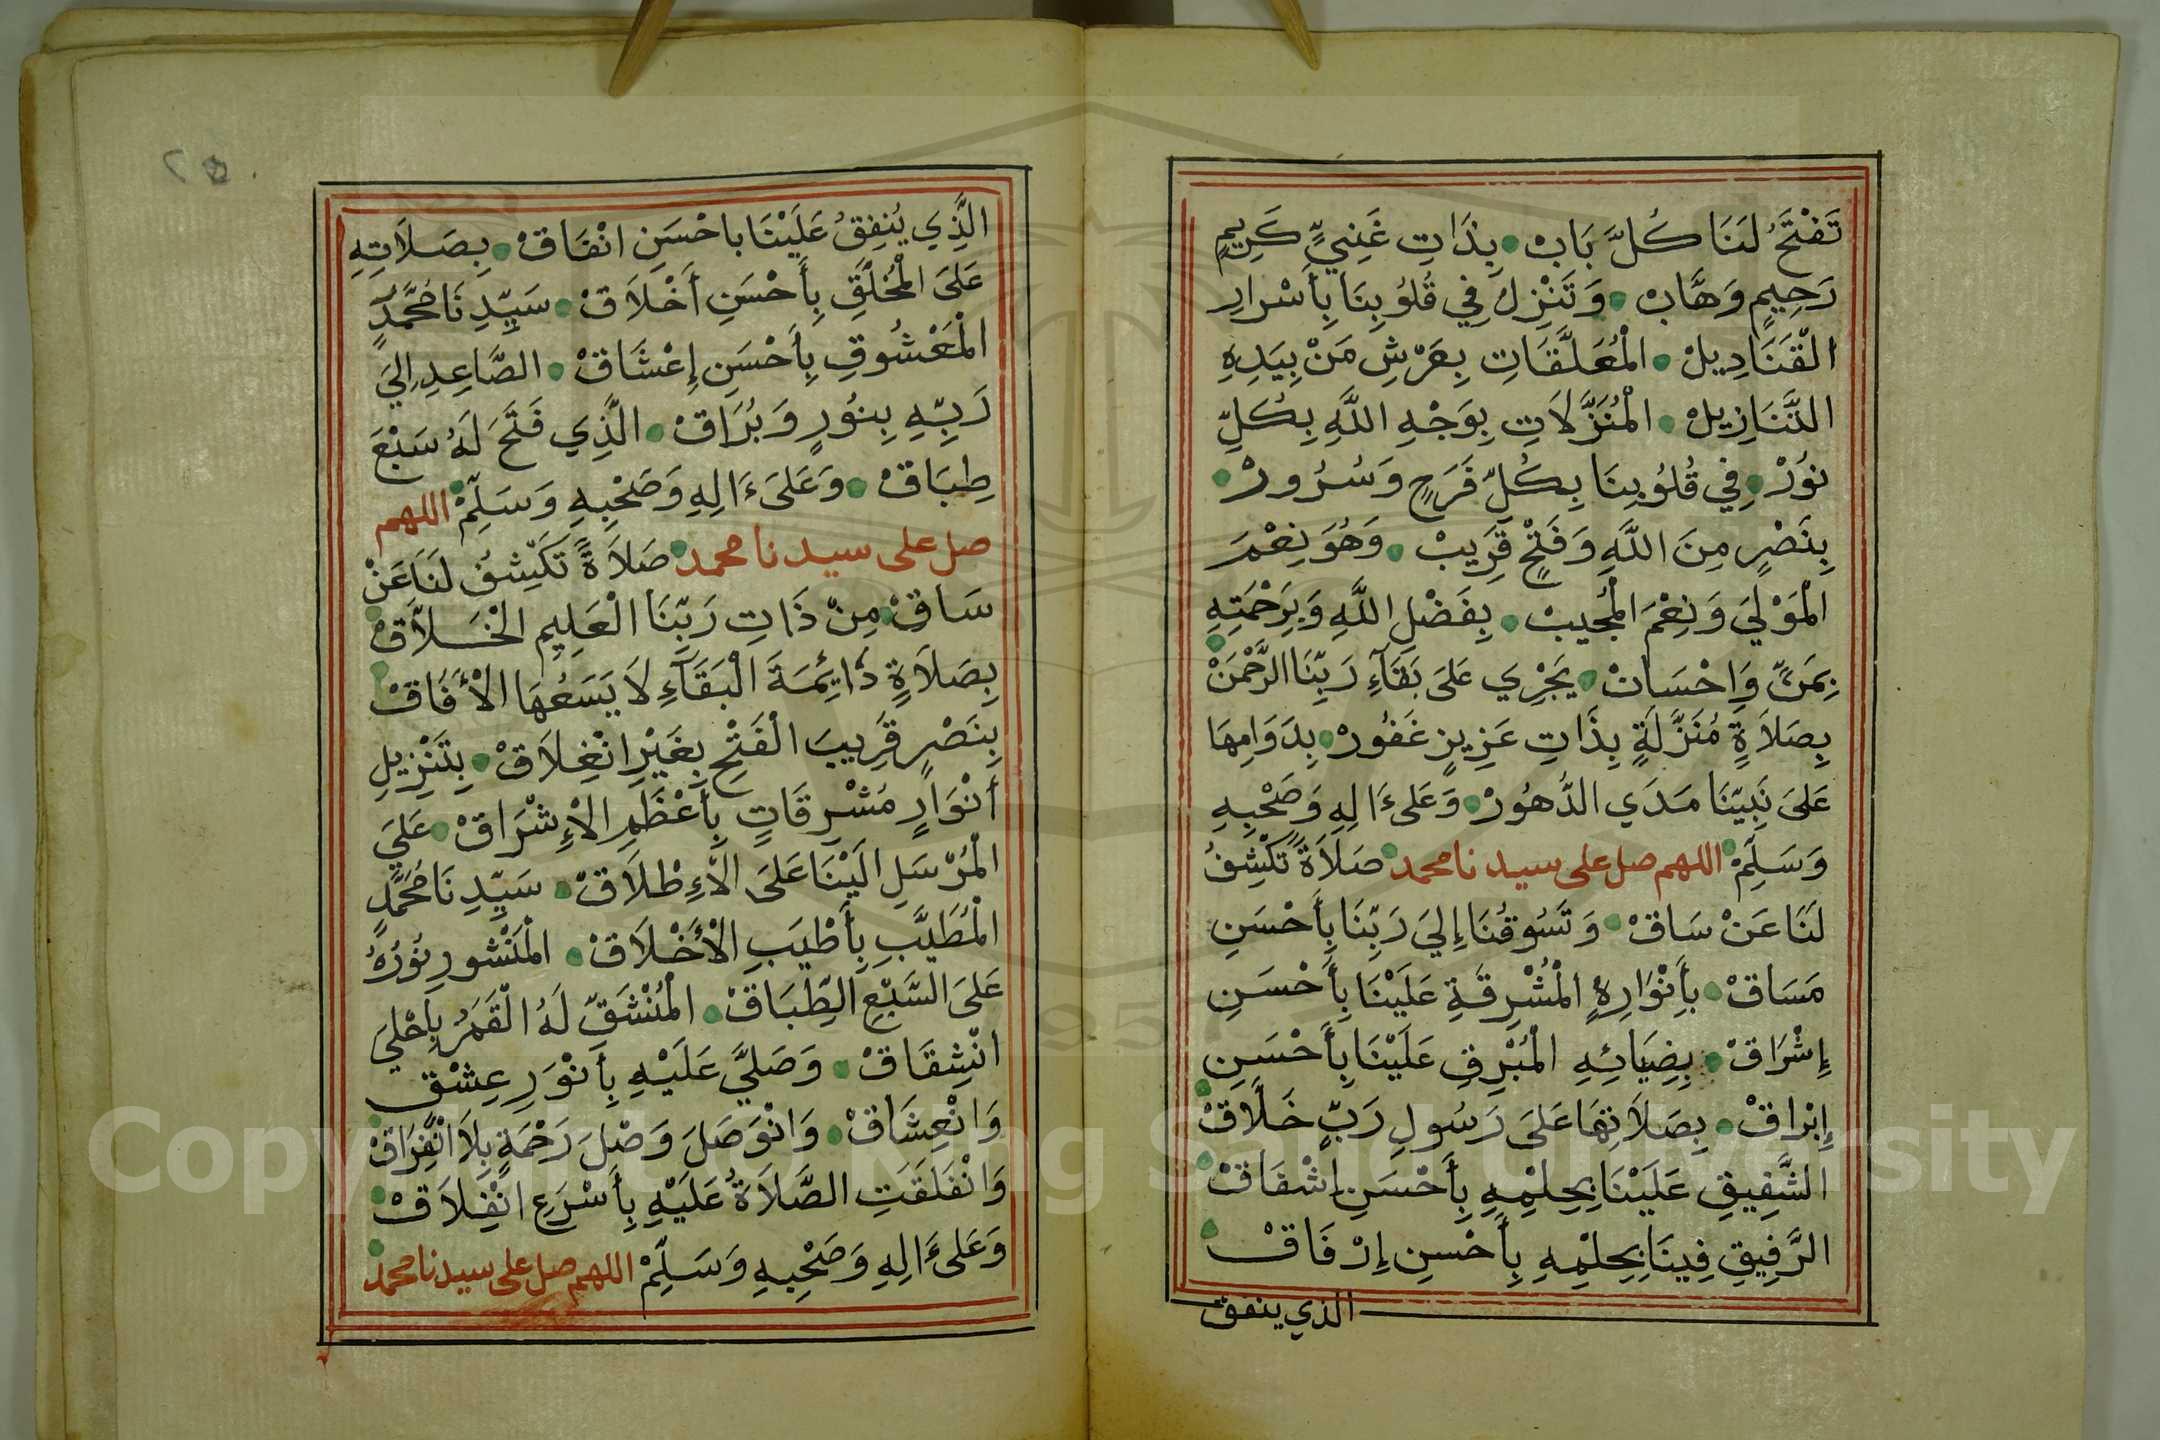 تَفْتَحُ لَنَا كُلَّ بَابْ بِذَاتِ غَنِيٍّ كَرِيمٍ
رَحِيمٍ وَهَّابْ وَتَنْزِلُ فِي قُلُوبِنَا بِأَسْرَارِ
الْقَنَادِيلْ الْمُعَلَّقَاتِ بِعَرْشِ مَنْ بِيَدِهِ
التَّنَازِيلْ الْمُنَزَّلَاتِ بِوَجْهِ اللَّهِ بِكُلِّ
نُورْ فِي قُلُوبِنَا بِكُلِّ فَرَحٍ وَسُرُورْ
بِنَصْرٍ مِنَ اللَّهِ وَفَتْحٍ قَرِيبْ وَهُوَ نِعْمَ
الْمَوْلَيَ وَنِعْمَ الْمُجِيبْ بِفَضْلِ اللَّهِ وَبِرَحْمَتِهِ
بِمَنٍّ وَإِحْسَانْ يَجْرِي عَلَى بَقَآءِ رَبِّنَا الرَّحْمَنْ
بِصَلَاةٍ مُنَزَّلَةٍ بِذَاتِ عَزِيزٍ غَفُورْ بِدَوَامِهَا
عَلَى نَبِيِّنَا مَدَي الدُّهُورْ وَعَلَى ءَالِهِ وَصَحْبِهِ
وَسَلِّمْ اللهم صل على سيدنا محمد صَلَاةً تَكْشِفُ
لَنَا عَنْ سَاقْ وَتَسُوقُنَا إِلَيَ رَبِّنَا بِأَحْسَنِ
مَسَاقْ بِأَنْوَارِهِ الْمُشْرِقَةِ عَلَيْنَا بِأَحْسَنِ
إِشْرَاقْ بِضِيَائِهِ الْمُبْرِقِ عَلَيْنَا بِأَحْسَنِ
إِبْرَاقْ بِصَلَاتِهَا عَلَى رَسُولِ رَبٍّ خَلَّاقْ
الشَّفِيقِ عَلَيْنَا بِحِلْمِهِ بِأَحْسَنِ إِشْفَاقْ
الرَّفِيقِ فِينَا بِحِلْمِهِ بِأَحْسَنِ إِرْفَاقْ
الذي ينفق
الَّذِي يُنْفِقُ عَلَيْنَا بِاحْسَنِ انْفَاقْ بِصَلَاتِهِ
عَلَى الْمُخَلَّقِ بِأَحْسَنِ أَخْلَاقْ سَيِّدِنَا مُحَمَّدٍ
الْمَعْشُوقِ بِأَحْسَنِ إِعْشَاقْ الصَّاعِدِ إِلَيَ
رَبِّهِ بِنُورٍ وَبُرَاقْ الَّذِي فَتَحَ لَهُ سَبْعَ
طِبَاقْ وَعَلَى ءَالِهِ وَصَحْبِهِ وَسَلِّمْ اللهم
صل على سيدنا محمد صَلَاةً تَكْشِفُ لَنَا عَنْ
سَاقْ مِنْ ذَاتِ رَبِّنَا الْعَلِيمِ الْخَلَّاقْ
بِصَلَاةٍ دَائِمَةَ الْبَقَآءِ لَا يَسَعُهَا الْأَفَاقْ
بِنَصْرٍ قَرِيبِ الْفَتْحِ بِغَيْرِ انْغِلَاقْ بِتَنْزِيلِ
أَنْوَارٍ مُشْرِقَاتٍ بِأَعْظَمِ الْإِشْرَاقْ عَلَيَ
الْمُرْسَلِ الَيْنَا عَلَى الْإِطْلَاقْ سَيِّدِنَا مُحَمَّدٍ
الْمُطَيَّبِ بِأَطْيَبِ الْأَخْلَاقْ الْمَنْشُورِ نُورُهُ
عَلَى السَّبْعِ الطِّبَاقْ الْمُنْشَقِّ لَهُ الْقَمَرُ بِاحْلَي
انْشِقَاقْ وَصَلَّيَ عَلَيْهِ بِأَنْوَرِ عِشْقٍ
وَانْعِشَاقْ وَانْوَصَلَ وَصْلَ رَحْمَةٍ بِلَا انْفِرَاقْ
وَانْفَلَقَتِ الصَّلَاةُ عَلَيْهِ بِأَسْرَعِ انْفِلَاقْ
وَعَلَى ءَالِهِ وَصَحْبِهِ وَسَلِّمْ اللهم صل على سيدنا محمد
Copyright © King Saud University